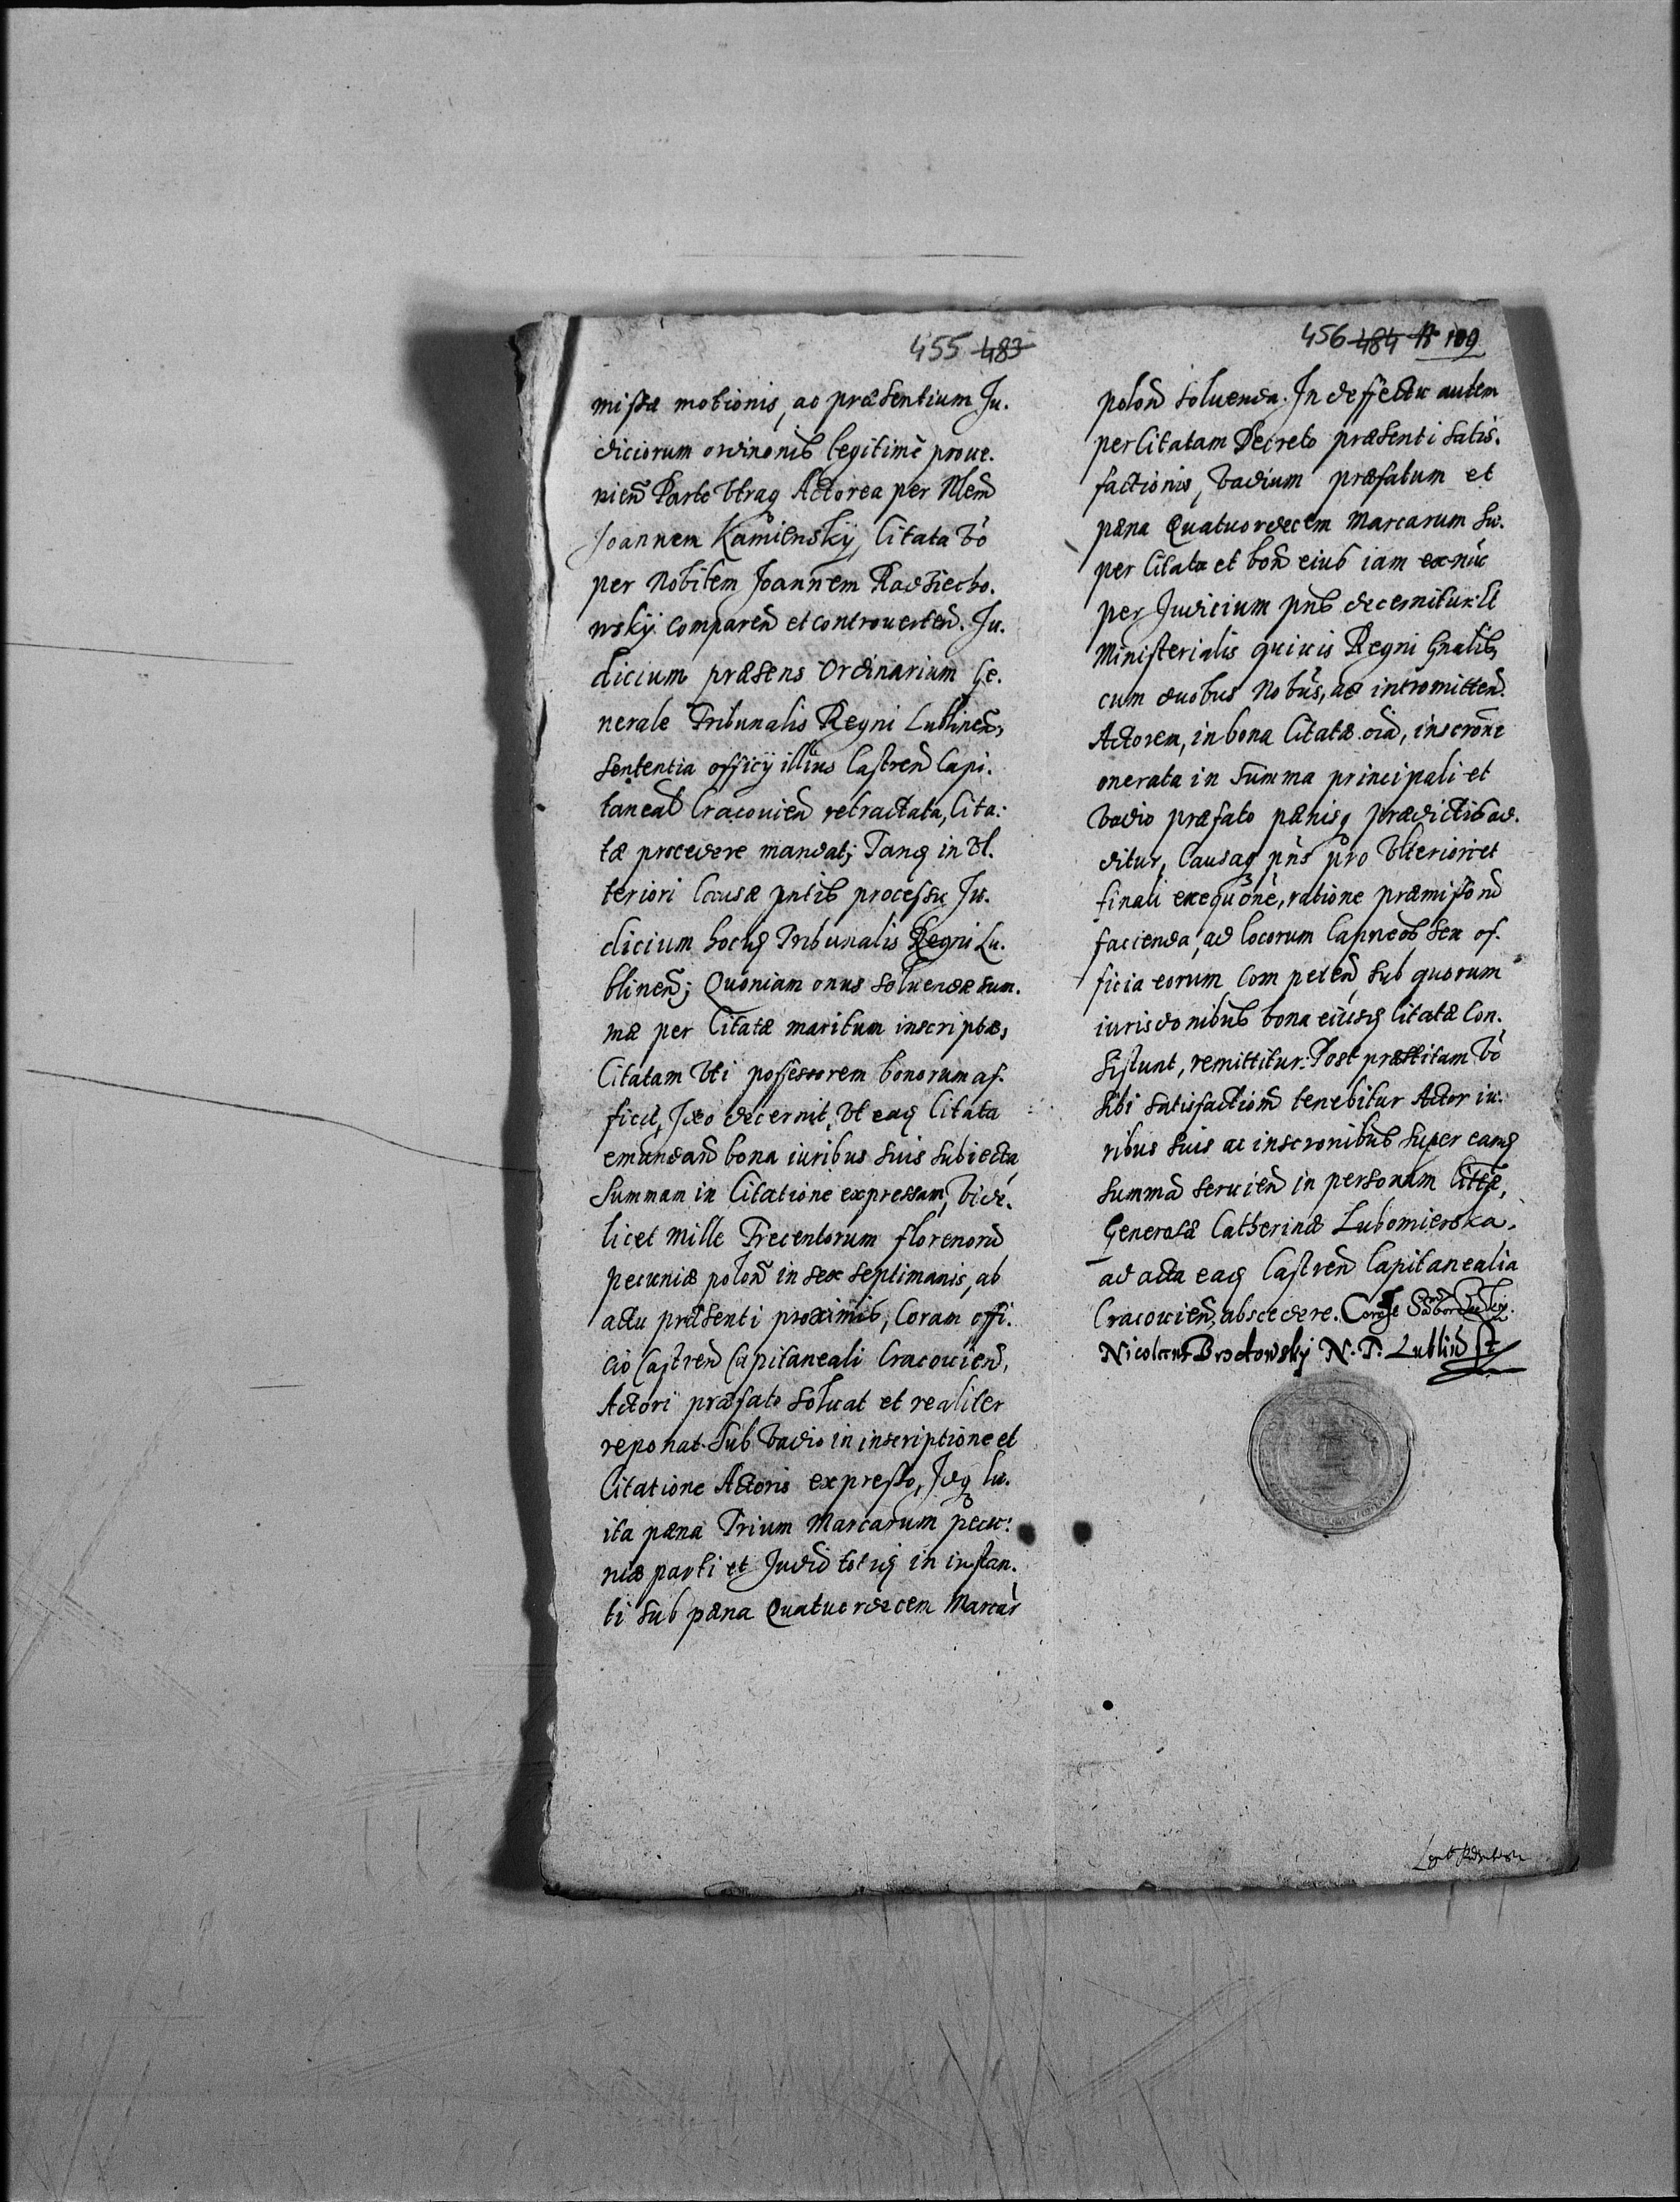 455 483
missæ motionis, ac præsentium Ju.
diciorum ordinonis legitimè proue.
nien̄ Parte Vtraq Actorea per Nlem
Joannem Kamiensky, Citata vo
per Nobilem Joannem Radziecho.
wsky comparen̄ et controuerten̄. Ju.
dicium præsens Ordinarium Ge.
nerale Tribunalis Regni Lublinen̄,
Sententia officÿ illius Castren̄ Capi.
taneal Cracouien̄ retractata, Cita.
tæ procedere mandat; Tanq in Vl.
teriori Causæ pntis processu Ju.
dicium hocq Tribunalis Regni Lu.
blinen̄; Quoniam onus soluendæ sum.
mæ per Citatæ maritum inscriptæ,
Citatam Vti possessorem bonorum af.
ficit, Ideo decernit, Vt eaq Citata
emundan̄ bona iuribus suis subiecta
Summam in Citatione expressam, Vide.
licet Mille Trecentorum florenorū
pecuniæ polon̄ in sex septimanis, ab
actu præsenti proximis, Coram offi.
cio Castren̄ Capitaneali Cracouien̄,
Actori præfato soluat et realiter
reponat. Sub Vadio in inscriptione et
Citatione Actoris expresso, Idq lu.
ita pæna Trium Marcarum pecu.
niæ parti et Judicio totiq in instan.
ti sub pæna Quatuordecem Marcar
456 484 109
polon̄ soluenda. In deffectu autem
per Citatam Decreto præsenti satis.
factionis, Vadium præfatum et
pæna Quatuordecem Marcarum su.
per Citata et bon̄ eius iam ex nūc
per Judicium pns decernitur. Et
Ministerialis quiuis Regni Gnalis,
cum duobus Nobus, ad intromitten̄.
Actorem, in bona Citatæ oīa, inscrone
onerata in Summa principali et
Vadio præfato pænisq prædictis ad.
ditur, Causaq pns pro Vlteriori et
finali exequōne, ratione præmissorū
facienda, ad locorum Capneos seu of.
ficia eorum competen̄ sub quorum
iurisdonibus bona eiusq Citatæ Con.
sistunt, remittitur. Post præstitam vo
sibi satisfactiom̄ tenebitur Actor iu.
ribus suis ac inscronibus super eamq
summā seruien̄ in personam Cittæ,
Generosæ Catherinæ Lubomierska,
ad acta eaq Castren̄ Capitanealia
Cracouien̄, abscedere.
Nicolaus N. T. Lublin̄